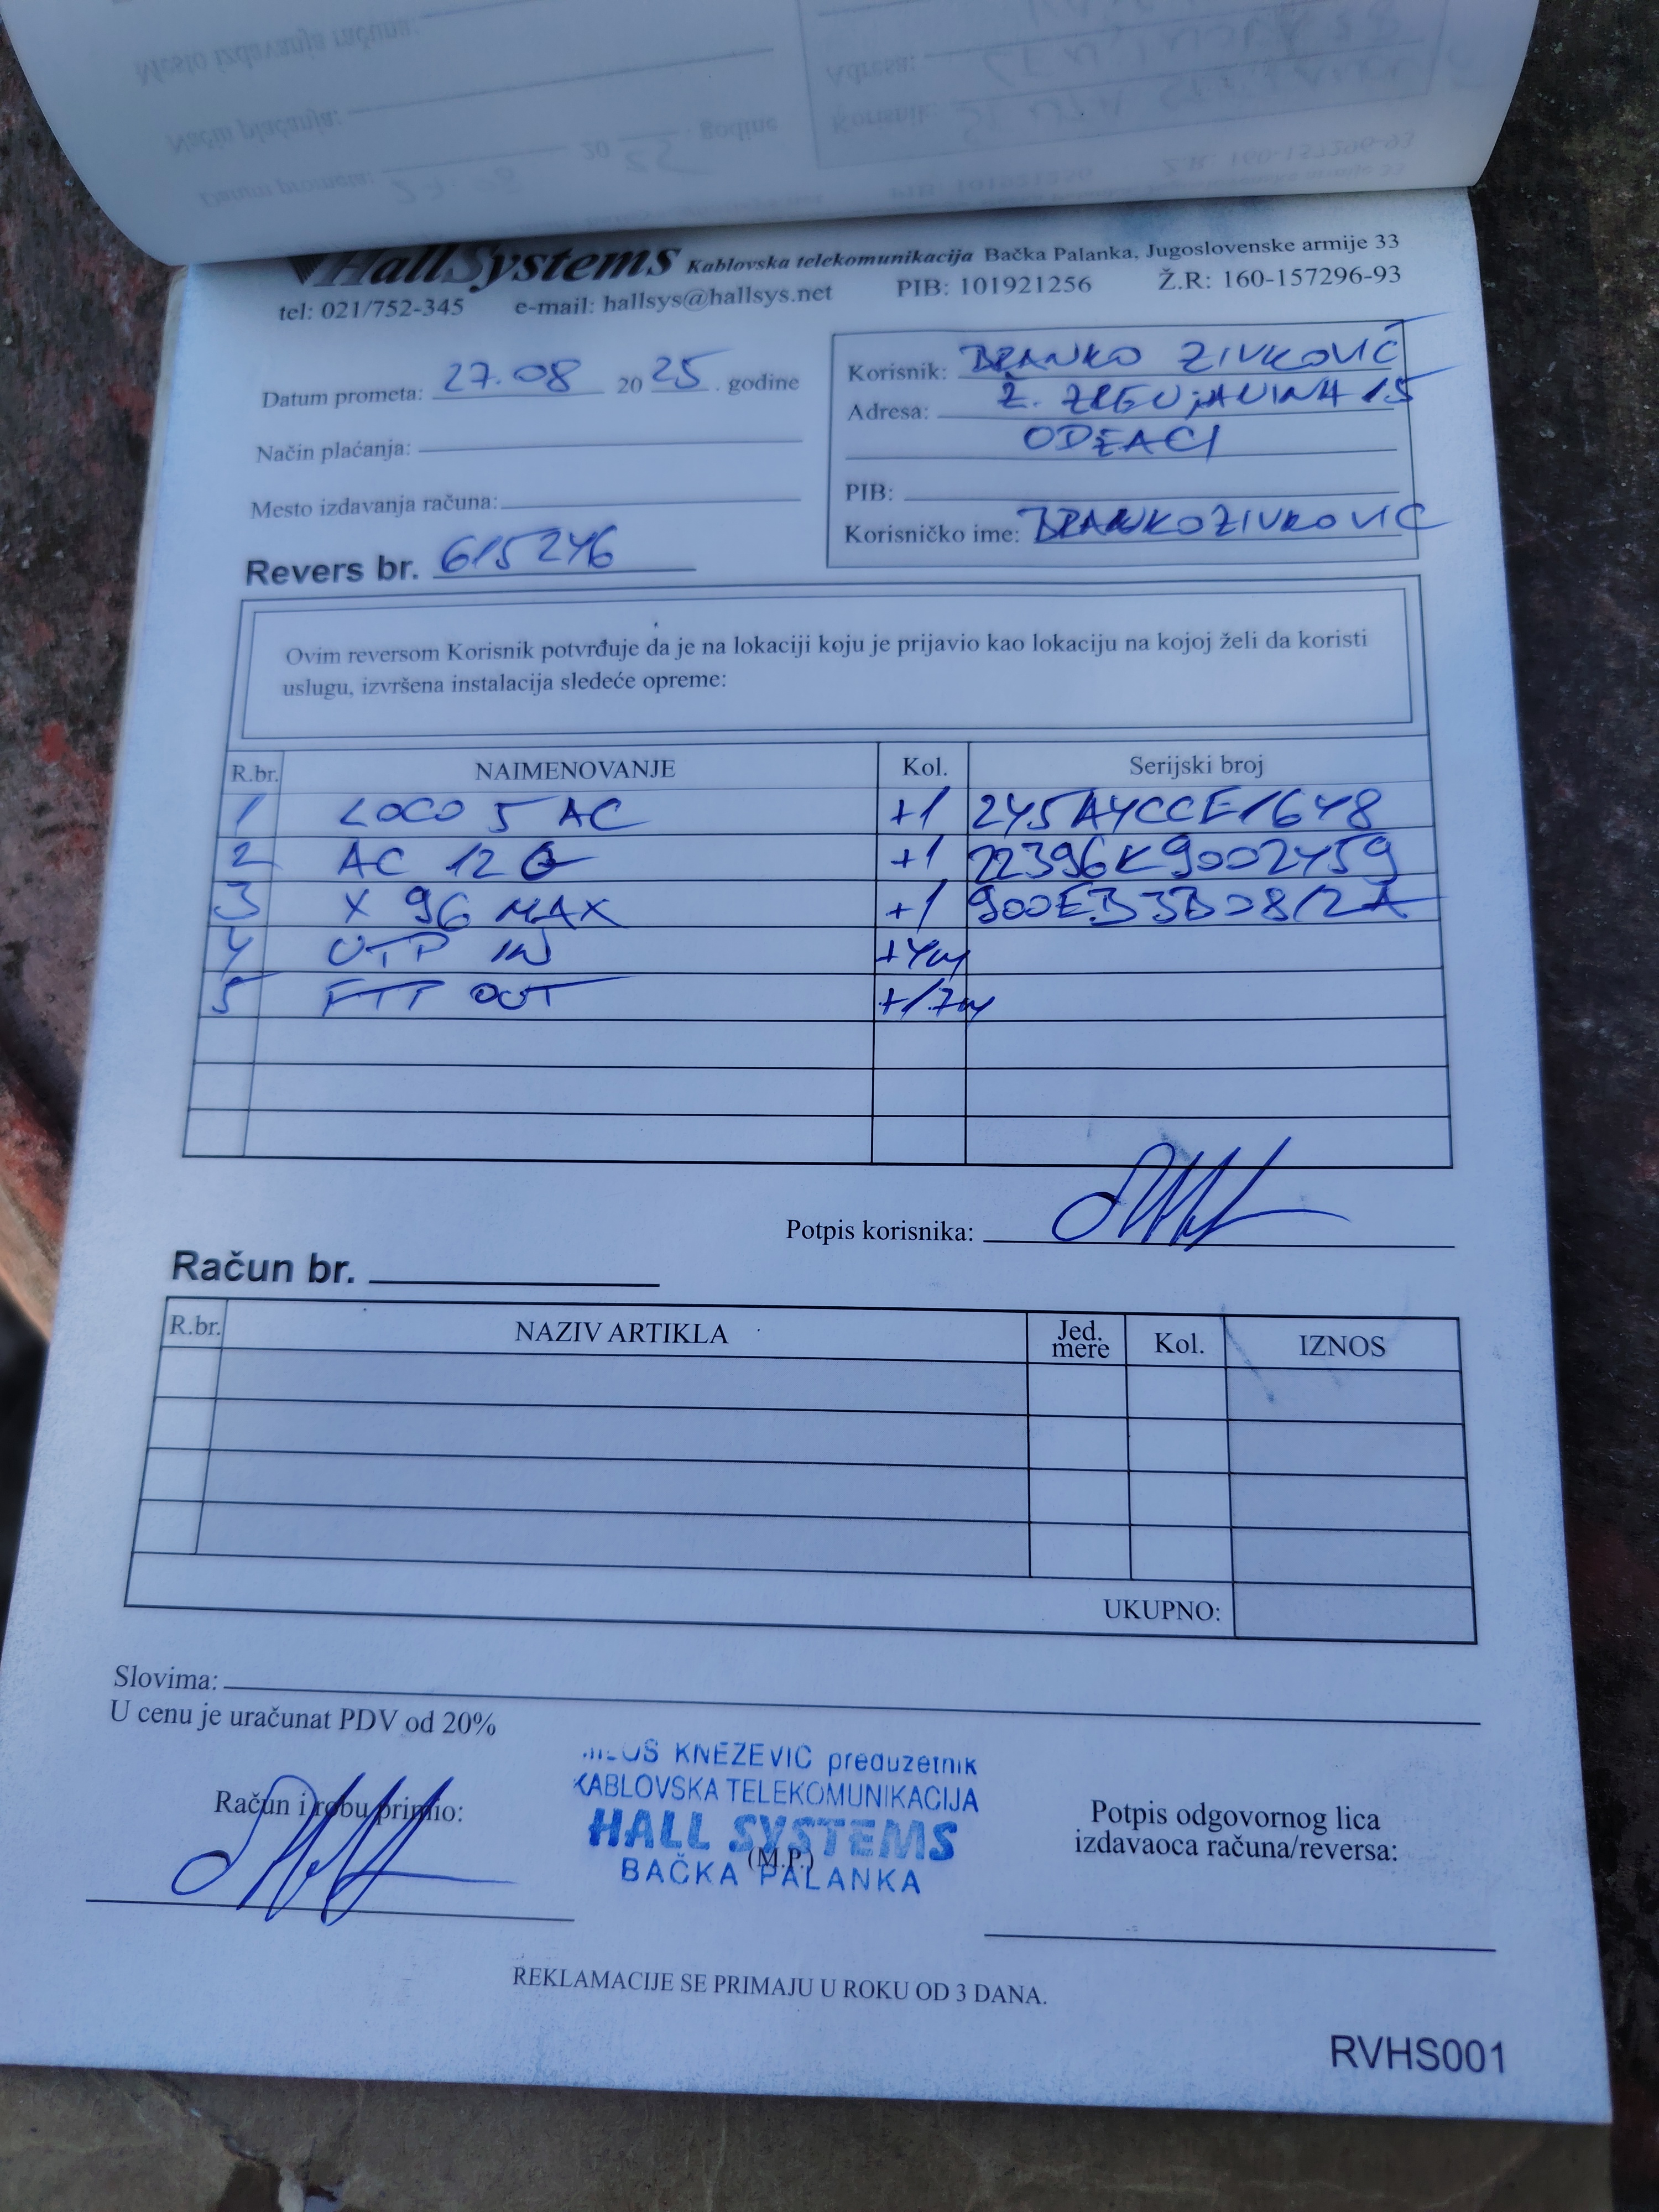 HallSystems Kablovska telekomunikacija Bačka Palanka, Jugoslovenske armije 33
tel: 021/752-345 e-mail: hallsys@hallsys.net PIB: 101921256 Ž.R: 160-157296-93
Datum prometa: 27.08 2025. godine
Način plaćanja:
Mesto izdavanja računa:
Revers br. 615246
Korisnik: BRANKO ZIVKOVIĆ
Adresa: Ž. ZRENJANINA 15
ODŽACI
PIB:
Korisničko ime: BRANKOZIVKOVIC
Ovim reversom Korisnik potvrđuje da je na lokaciji koju je prijavio kao lokaciju na kojoj želi da koristi
uslugu, izvršena instalacija sledeće opreme:
R.br. NAIMENOVANJE Kol. Serijski broj
1 LOCO 5 AC +1 245A4CCE1648
2 AC 12 G +1 22396K9002459
3 X 96 MAX +1 900EB3B0812A
4 UTP IN +4m
5 FTP OUT +17m
Potpis korisnika:
Račun br.
R.br. NAZIV ARTIKLA Jed. mere Kol. IZNOS
UKUPNO:
Slovima:
U cenu je uračunat PDV od 20%
Račun i robu primio:
KNEZEVIC preduzetnik
KABLOVSKA TELEKOMUNIKACIJA
HALL SYSTEMS
(M.P.)
BAČKA PALANKA
Potpis odgovornog lica
izdavaoca računa/reversa:
REKLAMACIJE SE PRIMAJU U ROKU OD 3 DANA.
RVHS001